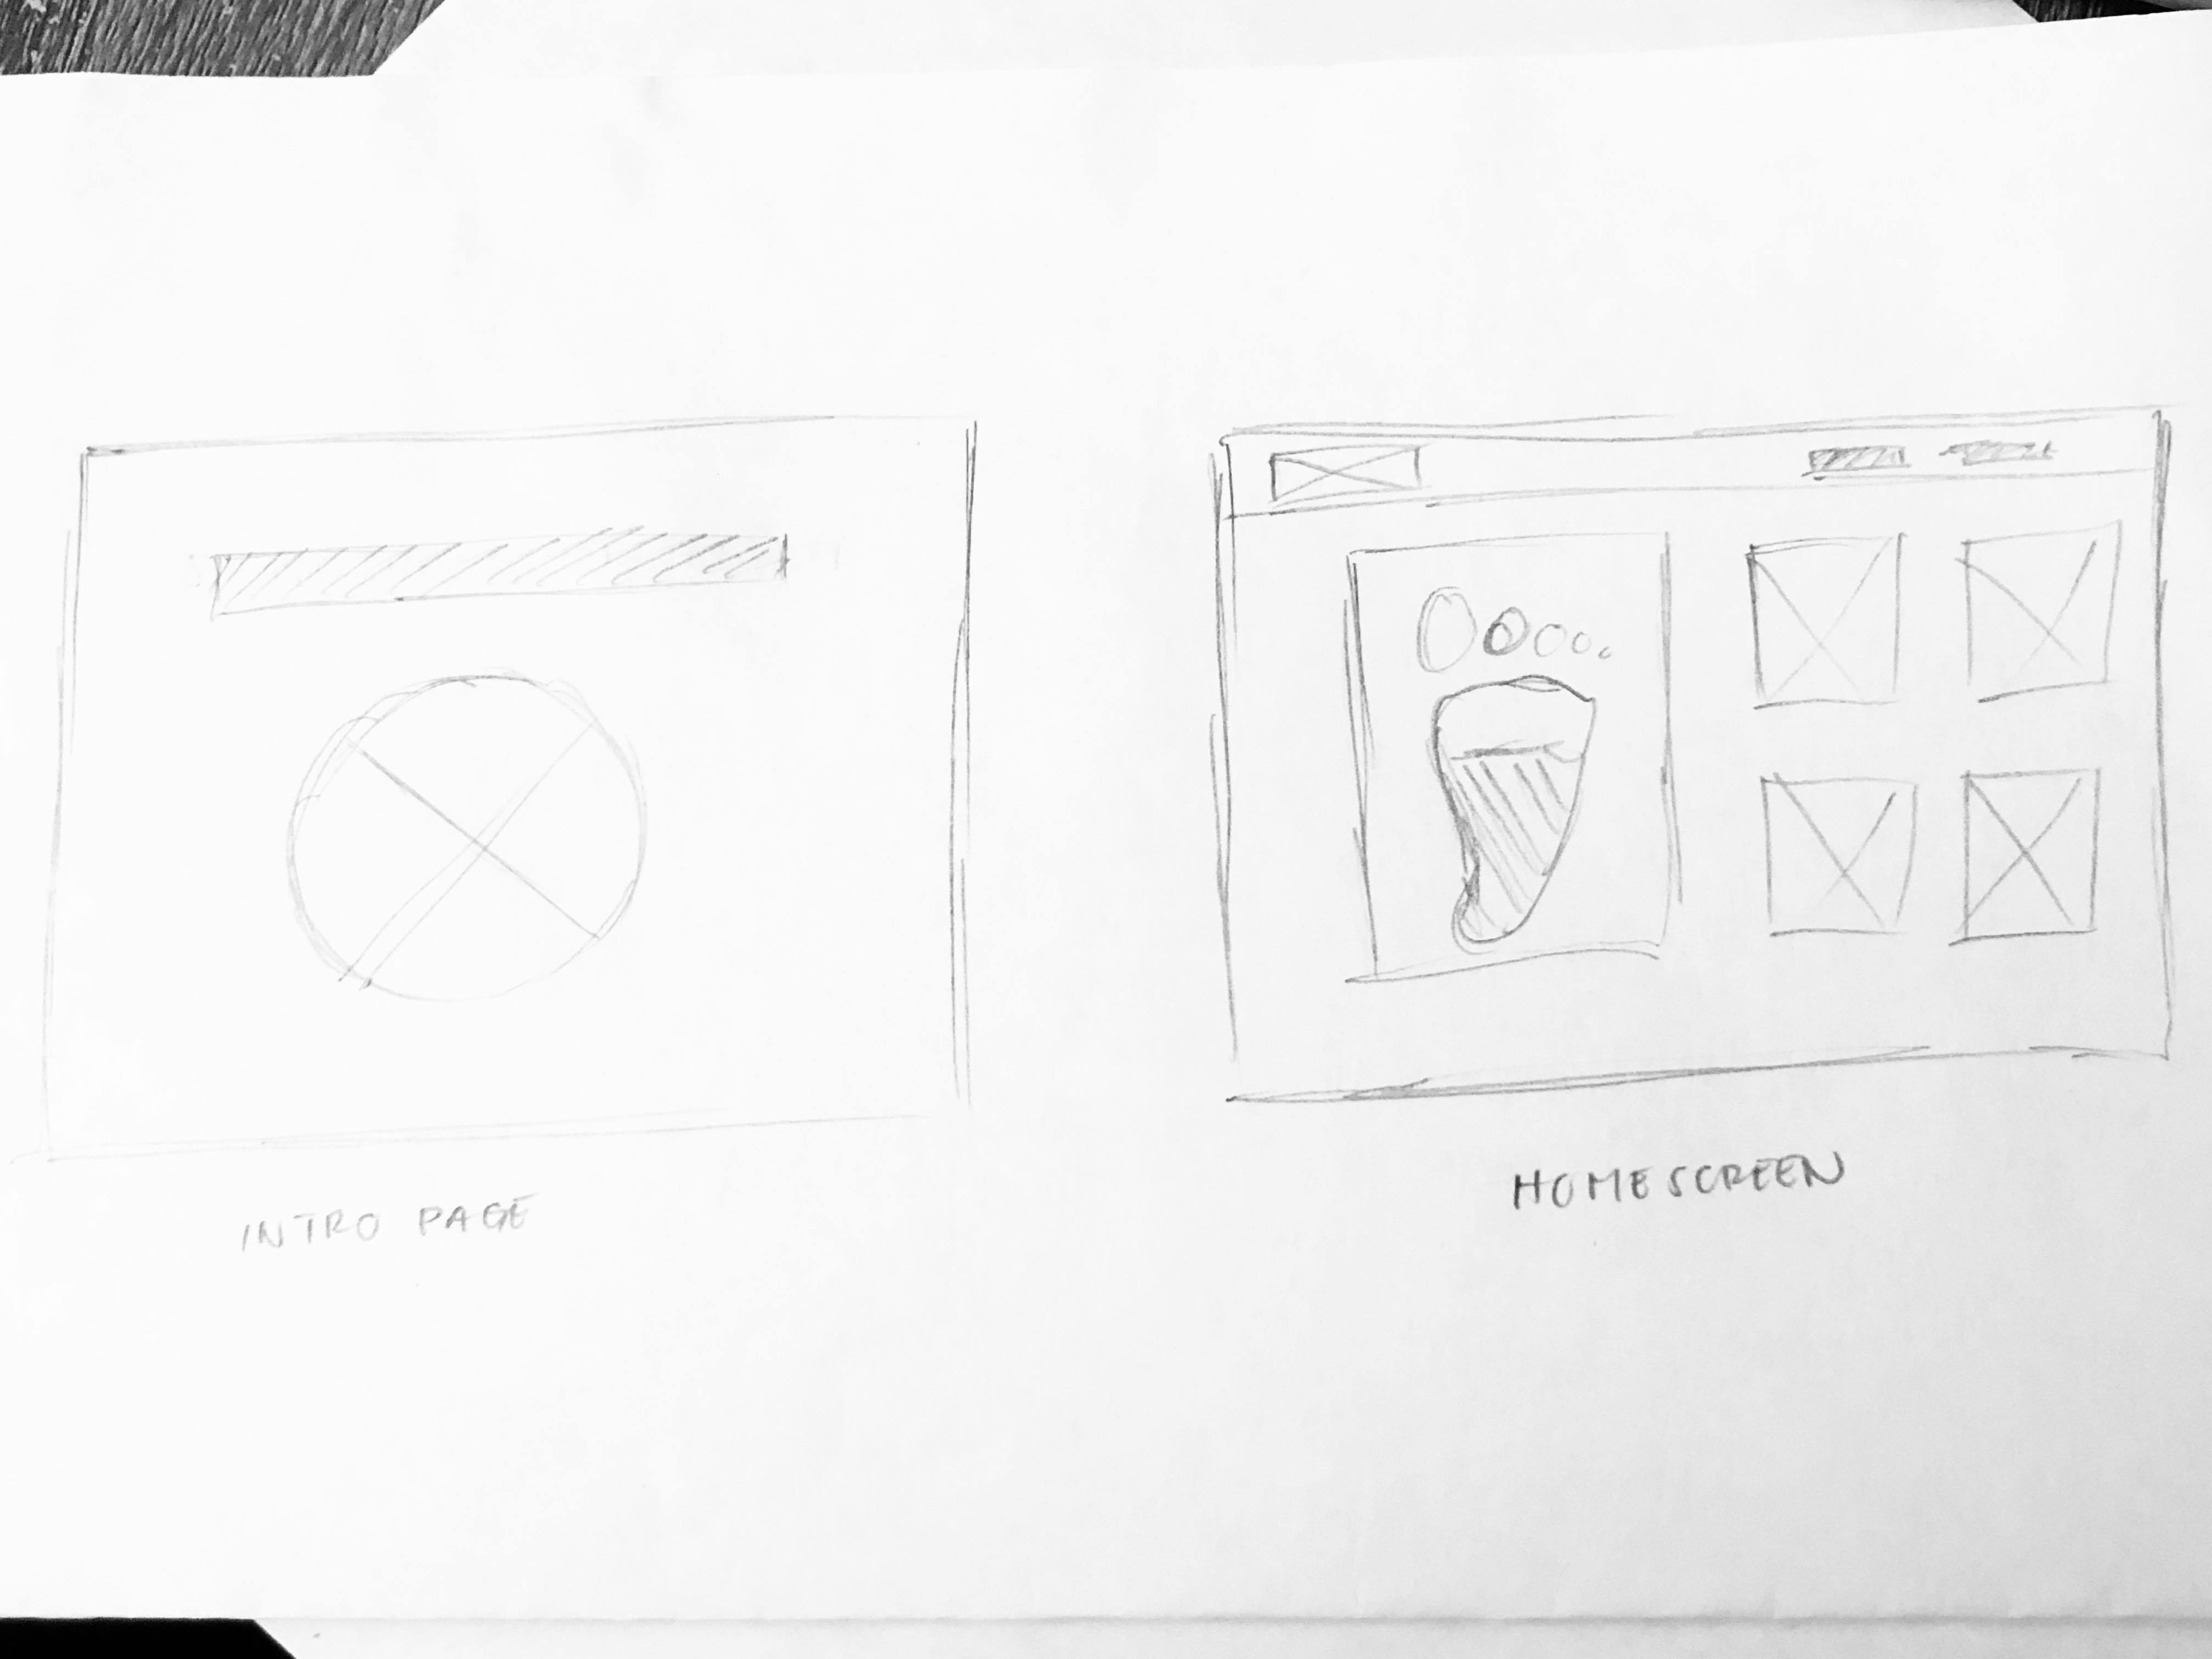 INTRO PAGE
HOMESCREEN